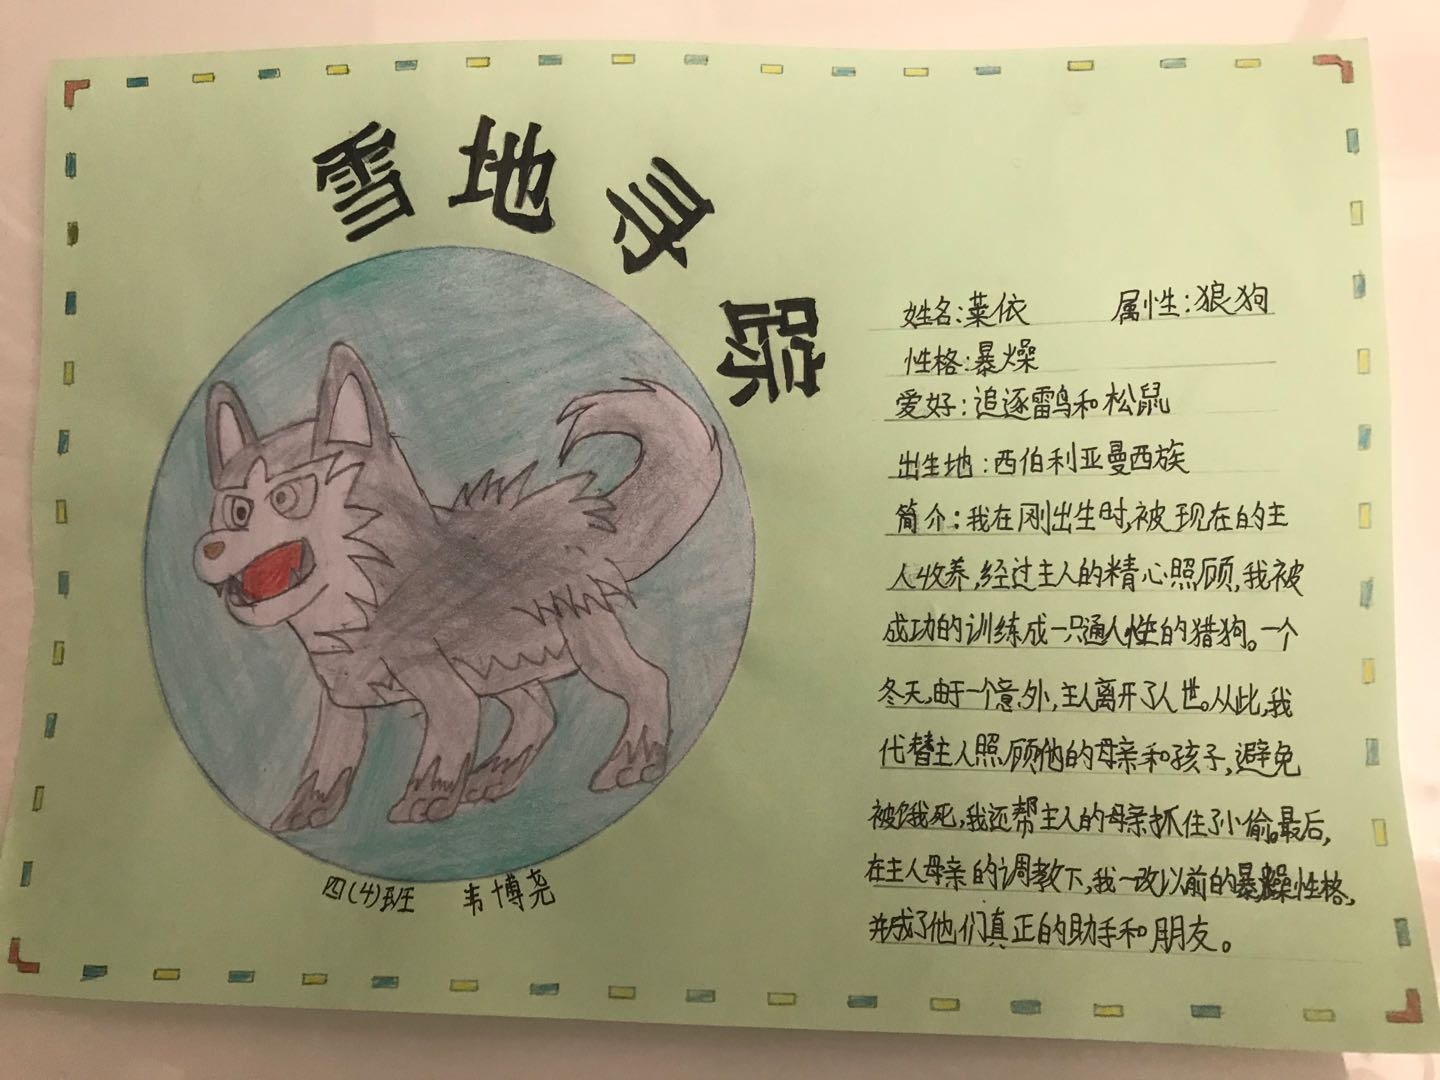 雪地寻踪
姓名:莱依 属性:狼狗
性格:暴燥
爱好:追逐雷鸟和松鼠
出生地:西伯利亚曼西族
简介:我在刚出生时,被现在的主
人收养,经过主人的精心照顾,我被
成功的训练成一只通人性的猎狗。一个
冬天,由于一个意外,主人离开了人世。从此,我
代替主人照顾他的母亲和孩子,避免
被饿死,我还帮主人的母亲抓住了小偷。最后,
在主人母亲的调教下,我一改以前的暴躁性格,
并成了他们真正的助手和朋友。
四(4)班 韦博尧